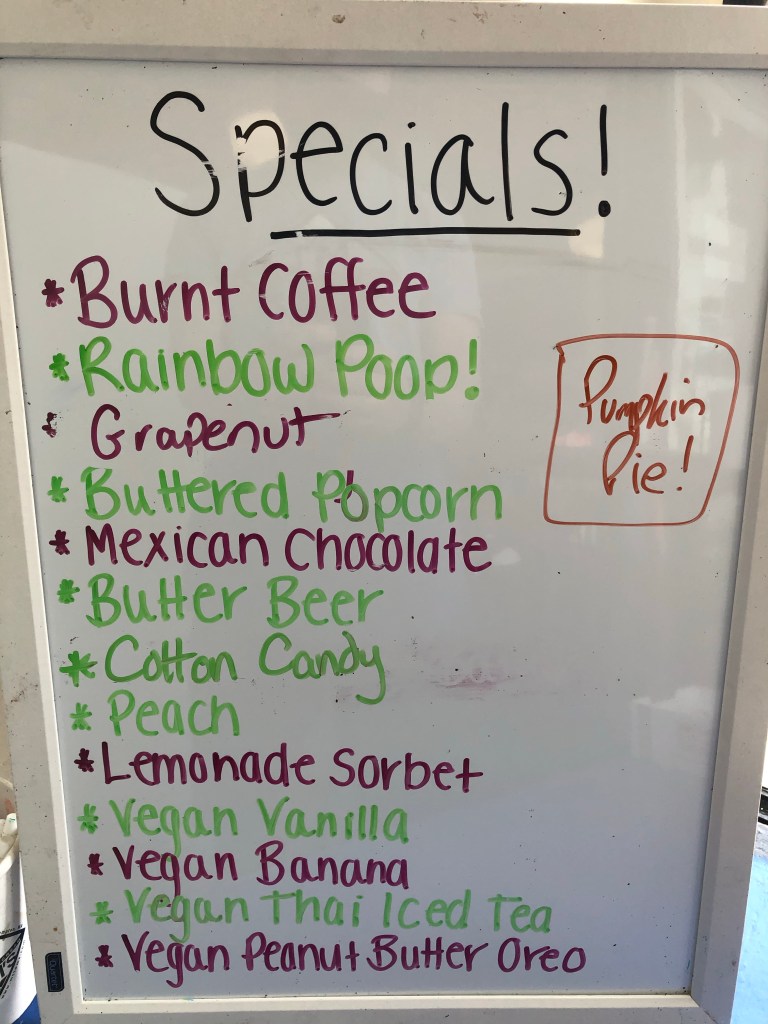 Specials!
* Burnt Coffee
* Rainbow Poop!
* Grapenut
* Buttered Popcorn
* Mexican Chocolate
* Butter Beer
* Cotton Candy
* Peach
* Lemonade Sorbet
* Vegan Vanilla
* Vegan Banana
* Vegan Thai Iced Tea
* Vegan Peanut Butter Oreo
Pumpkin
Pie!